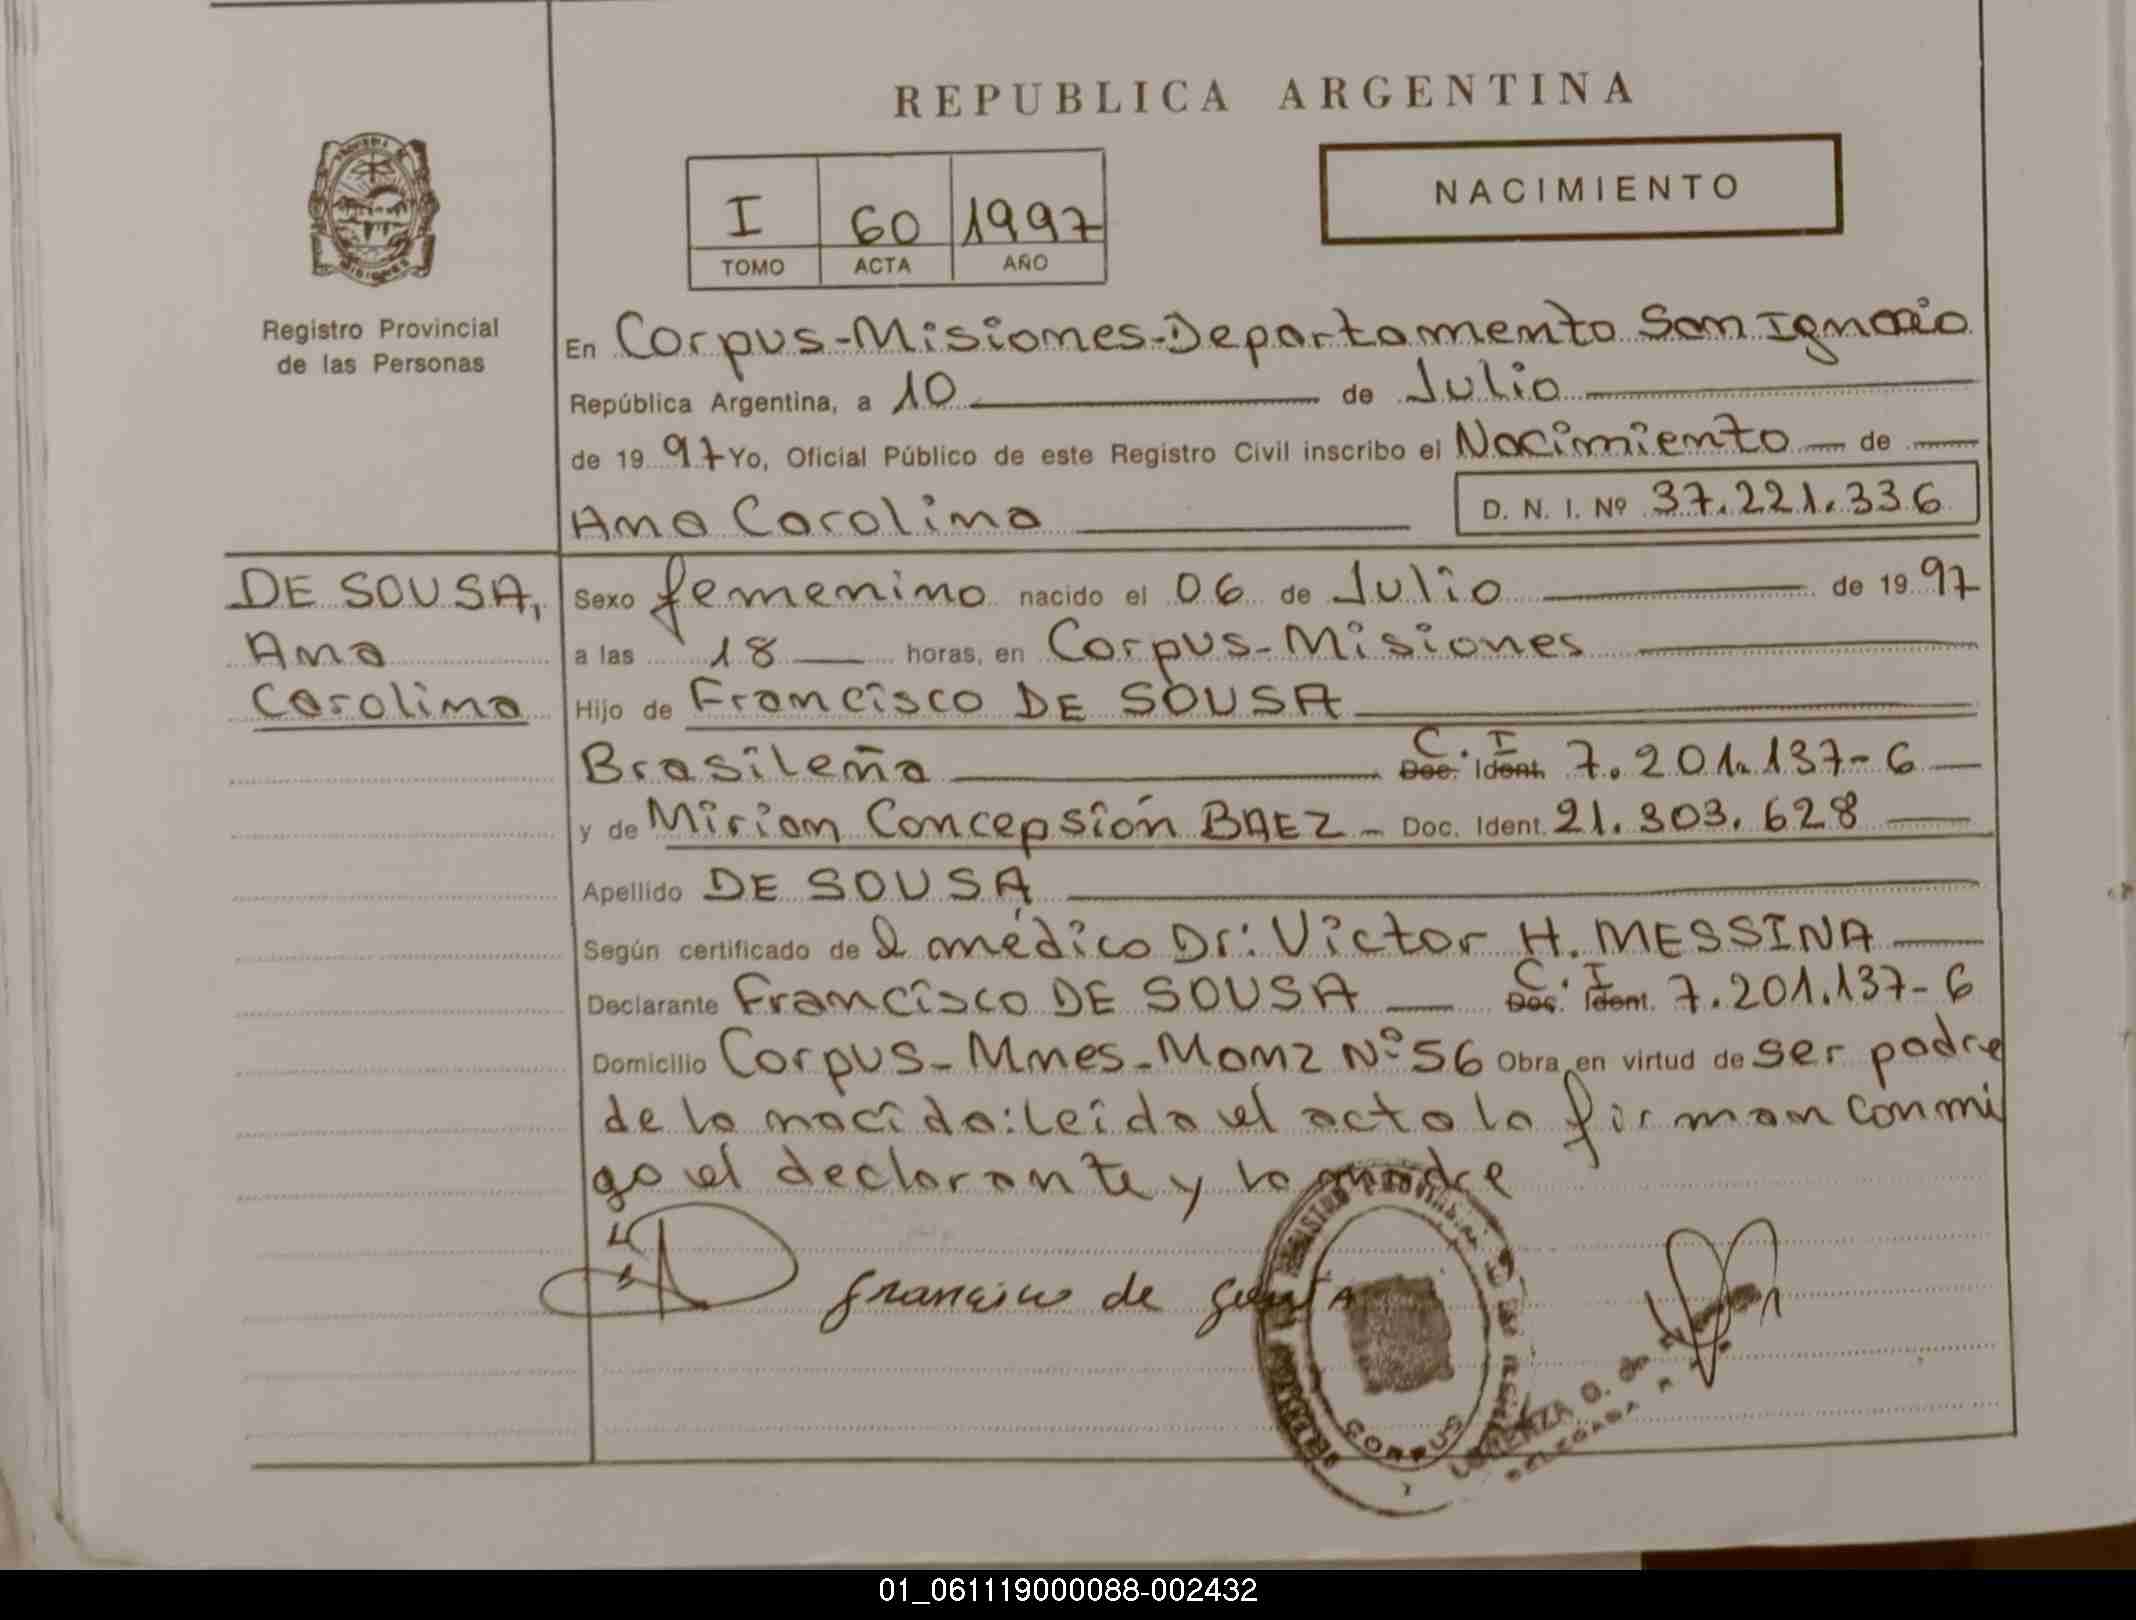 REPUBLICA ARGENTINA
NACIMIENTO
I 60 1997
TOMO ACTA AÑO
Registro Provincial
de las Personas
En Corpus-Misiones-Departamento San Ignacio
República Argentina, a 10 de Julio
de 1997 Yo, Oficial Público de este Registro Civil inscribo el Nacimiento de
Ana Carolina D. N. I. Nº 37.221.336
DE SOUSA,
Ana
Carolina
Sexo femenino nacido el 06 de Julio de 1997
a las 18 horas, en Corpus-Misiones
Hijo de Francisco DE SOUSA
Brasileña C.I Doc. Ident. 7.201.137-6
y de Mirian Concepsión BAEZ - Doc. Ident. 21.303.628
Apellido DE SOUSA
Según certificado de el médico Dr: Victor H. MESSINA
Declarante Francisco DE SOUSA C.I Doc. Ident. 7.201.137-6
Domicilio Corpus-Mnes-Manz Nº 56 Obra en virtud de ser padre
de la nacida: leída el acta la firman conmi
go el declarante y la madre
francisco de
CORPUS
01_061119000088-002432